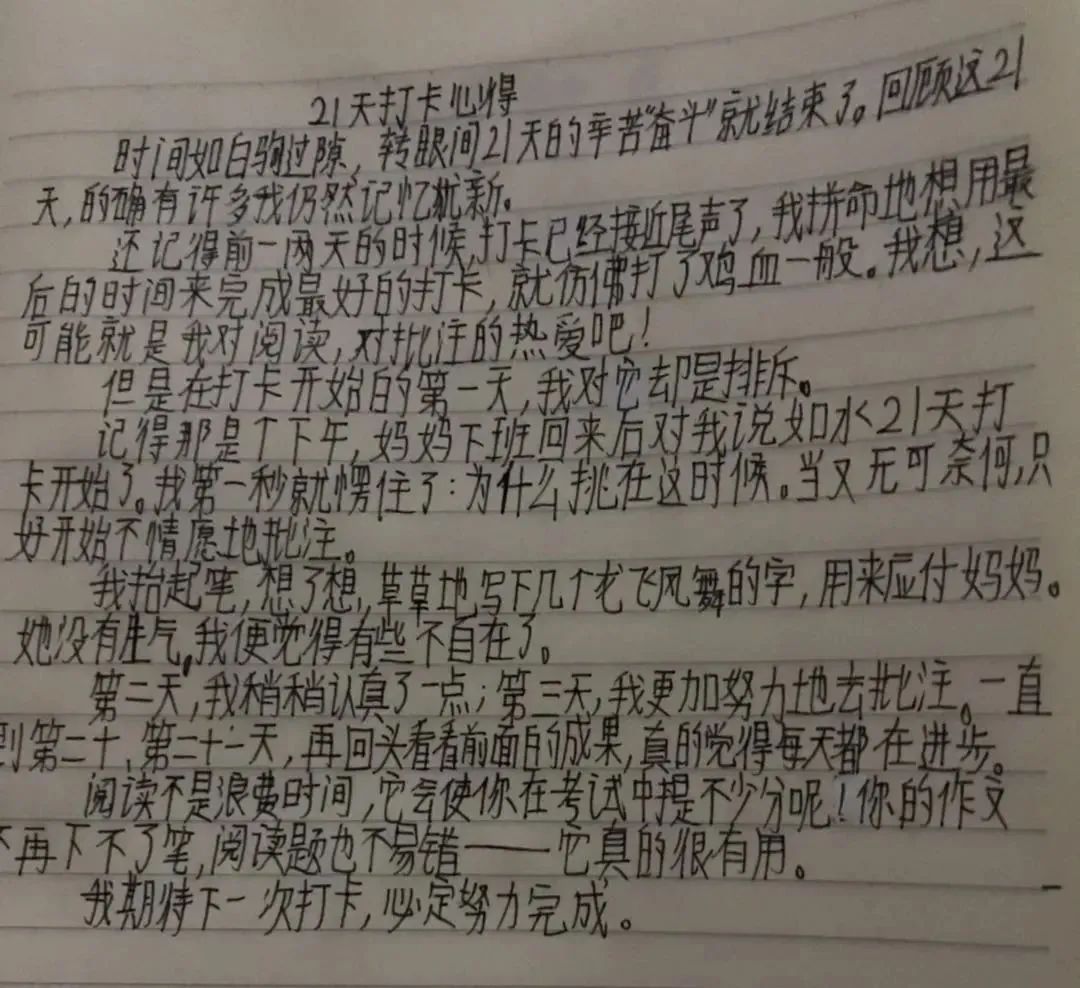 21天打卡心得
时间如白驹过隙，转眼间21天的辛苦“奋斗”就结束了。回顾这21
天，的确有许多我仍然记忆犹新。
还记得前一两天的时候，打卡已经接近尾声了，我拼命地想用最
后的时间来完成最好的打卡，就仿佛打了鸡血一般。我想，这
可能就是我对阅读，对批注的热爱吧！
但是在打卡开始的第一天，我对它却是排斥。
记得那是个下午，妈妈下班回来后对我说如水21天打
卡开始了。我第一秒就愣住了：为什么挑在这时候。当又无可奈何，只
好开始不情愿地批注。
我抬起笔，想了想，草草地写下几个龙飞凤舞的字，用来应付妈妈。
她没有生气，我便觉得有些不自在了。
第二天，我稍稍认真了一点；第三天，我更加努力地去批注。一直
到第二十、第二十一天，再回头看看前面的成果，真的觉得每天都在进步。
阅读不是浪费时间，它会使你在考试中提不少分呢！你的作文
不再下不了笔，阅读题也不易错——它真的很有用。
我期待下一次打卡，必定努力完成。